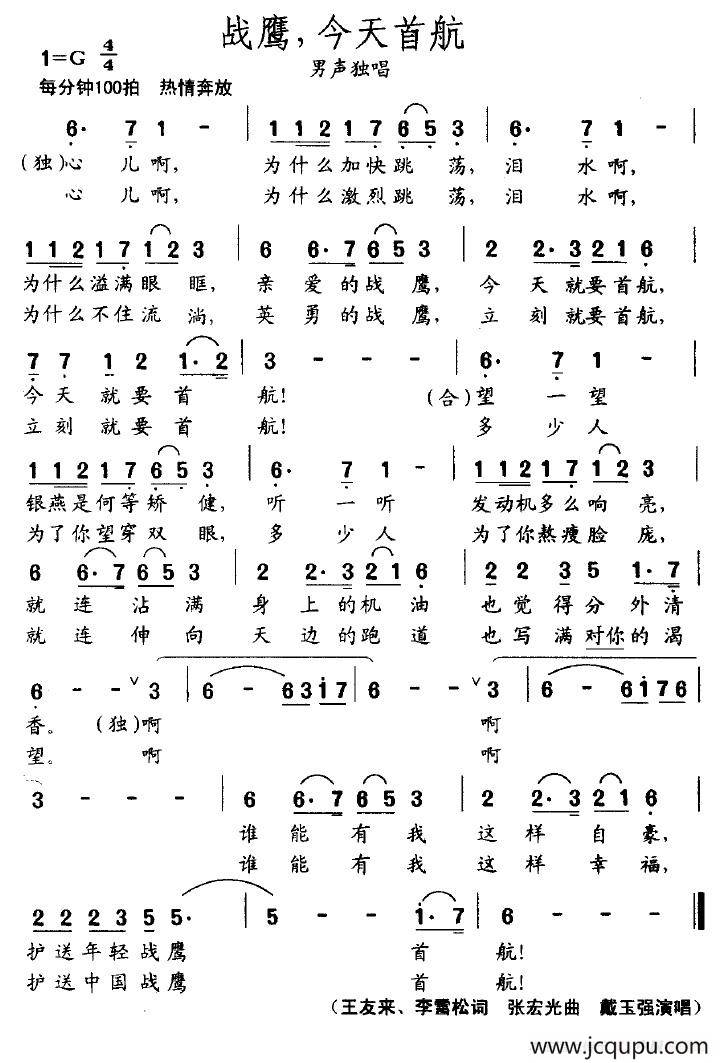 战鹰,今天首航
1=G 4/4
男声独唱
每分钟100拍 热情奔放
6· 7 1 - | 1 1 2 1 7 6 5 3 | 6· 7 1 - |
(独)心 儿 啊, 为什么加快跳 荡, 泪 水 啊,
心 儿 啊, 为什么激烈跳 荡, 泪 水 啊,
1 1 2 1 7 1 2 3 | 6 6· 7 6 5 3 | 2 2· 3 2 1 6 |
为什么溢满眼 眶, 亲 爱的战 鹰, 今 天就要首航,
为什么不住流 淌, 英 勇的战 鹰, 立 刻就要首航,
7 7 1 2 1· 2 | 3 - - - | 6· 7 1 - |
今天 就要首 航! (合)望 一望
立刻 就要首 航! 多 少人
1 1 2 1 7 6 5 3 | 6· 7 1 - | 1 1 2 1 7 1 2 3 |
银燕是何等矫 健, 听 一听 发动机多么响 亮,
为了你望穿双 眼, 多 少人 为了你熬瘦脸 庞,
6 6· 7 6 5 3 | 2 2· 3 2 1 6 | 2 2 3 5 1· 7 |
就 连 沾 满 身 上的机 油 也觉得分外清
就 连 伸 向 天 边的跑 道 也写满对你的渴
6 - - ∨ 3 | 6 - - 6 3 1 7 | 6 - - ∨ 3 | 6 - - 6 1 7 6 |
香。 (独)啊 啊
望。 啊 啊
3 - - - | 6 6· 7 6 5 3 | 2 2· 3 2 1 6 |
谁 能 有 我 这 样 自 豪,
谁 能 有 我 这 样 幸 福,
2 2 2 3 5 5· | 5 - - 1· 7 | 6 - - ‖
护送年轻战鹰 首 航!
护送中国战鹰 首 航!
(王友来、李雷松词 张宏光曲 戴玉强演唱)
www.jcqupu.com